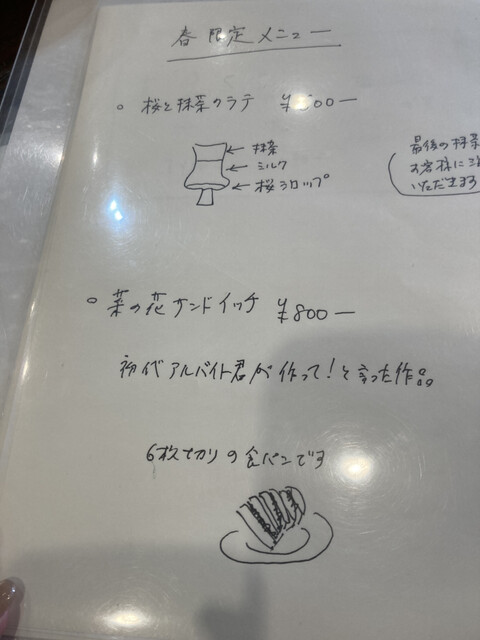 春限定メニュー
○ 桜と抹茶のラテ ¥ 00ー
← 抹茶
← ミルク
← 桜シロップ
最後の抹茶
お客様に
いただきます
○ 菜の花サンドイッチ ¥800ー
初代アルバイト君が作って!と言った作品。
6枚切りの食パンです